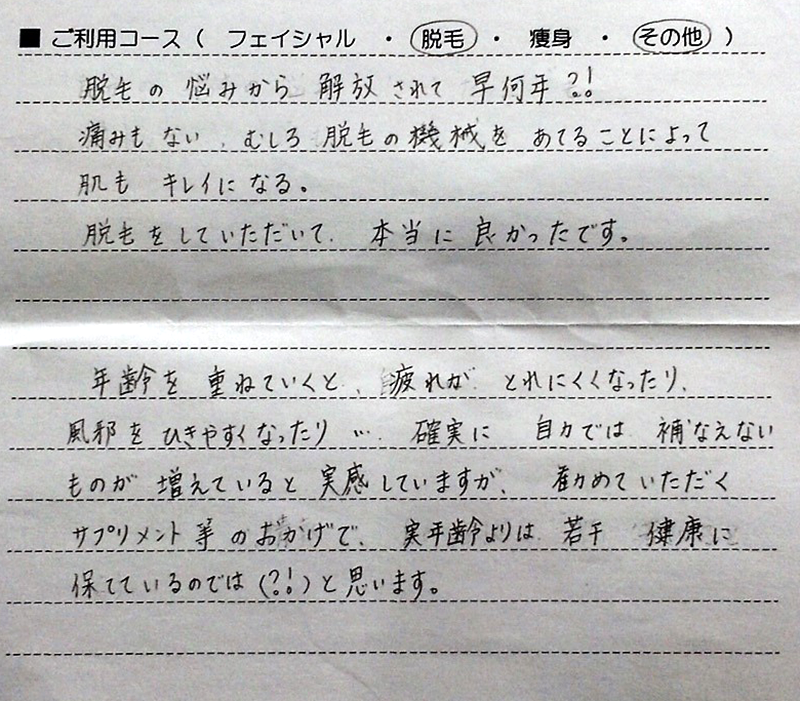 ■ ご利用コース（ フェイシャル ・ 脱毛 ・ 痩身 ・ その他 ）
脱毛の悩みから解放されて早何年?!
痛みもない、むしろ脱毛の機械をあてることによって
肌もキレイになる。
脱毛をしていただいて、本当に良かったです。
年齢を重ねていくと、疲れがとれにくくなったり、
風邪をひきやすくなったり… 確実に自力では補なえない
ものが増えていると実感していますが、勧めていただく
サプリメント等のおかげで、実年齢よりは若干健康に
保てているのでは(?!)と思います。